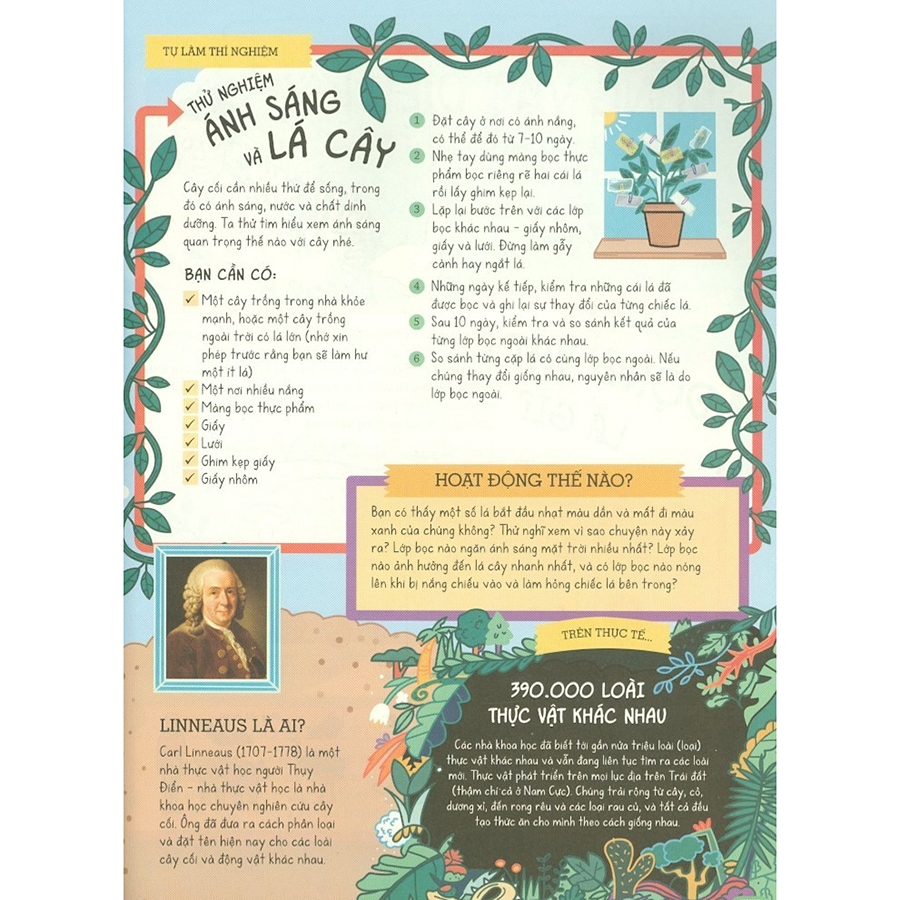 TỰ LÀM THÍ NGHIỆM
THỬ NGHIỆM
ÁNH SÁNG
VÀ LÁ CÂY
Cây cối cần nhiều thứ để sống, trong
đó có ánh sáng, nước và chất dinh
dưỡng. Ta thử tìm hiểu xem ánh sáng
quan trọng thế nào với cây nhé.
BẠN CẦN CÓ:
Một cây trồng trong nhà khỏe
mạnh, hoặc một cây trồng
ngoài trời có lá lớn (nhớ xin
phép trước rằng bạn sẽ làm hư
một ít lá)
Một nơi nhiều nắng
Màng bọc thực phẩm
Giấy
Lưới
Ghim kẹp giấy
Giấy nhôm
1 Đặt cây ở nơi có ánh nắng,
có thể để đó từ 7-10 ngày.
2 Nhẹ tay dùng màng bọc thực
phẩm bọc riêng rẽ hai cái lá
rồi lấy ghim kẹp lại.
3 Lặp lại bước trên với các lớp
bọc khác nhau - giấy nhôm,
giấy và lưới. Đừng làm gẫy
cành hay ngắt lá.
4 Những ngày kế tiếp, kiểm tra những cái lá đã
được bọc và ghi lại sự thay đổi của từng chiếc lá.
5 Sau 10 ngày, kiểm tra và so sánh kết quả của
từng lớp bọc ngoài khác nhau.
6 So sánh từng cặp lá có cùng lớp bọc ngoài. Nếu
chúng thay đổi giống nhau, nguyên nhân sẽ là do
lớp bọc ngoài.
HOẠT ĐỘNG THẾ NÀO?
Bạn có thấy một số lá bắt đầu nhạt màu dần và mất đi màu
xanh của chúng không? Thử nghĩ xem vì sao chuyện này xảy
ra? Lớp bọc nào ngăn ánh sáng mặt trời nhiều nhất? Lớp bọc
nào ảnh hưởng đến lá cây nhanh nhất, và có lớp bọc nào nóng
lên khi bị nắng chiếu vào và làm hỏng chiếc lá bên trong?
LINNEAUS LÀ AI?
Carl Linneaus (1707-1778) là một
nhà thực vật học người Thụy
Điển - nhà thực vật học là nhà
khoa học chuyên nghiên cứu cây
cối. Ông đã đưa ra cách phân loại
và đặt tên hiện nay cho các loài
cây cối và động vật khác nhau.
TRÊN THỰC TẾ...
390.000 LOÀI
THỰC VẬT KHÁC NHAU
Các nhà khoa học đã biết tới gần nửa triệu loài (loại)
thực vật khác nhau và vẫn đang liên tục tìm ra các loài
mới. Thực vật phát triển trên mọi lục địa trên Trái đất
(thậm chí cả ở Nam Cực). Chúng trải rộng từ cây, cỏ,
dương xỉ, đến rong rêu và các loại rau củ, và tất cả đều
tạo thức ăn cho mình theo cách giống nhau.